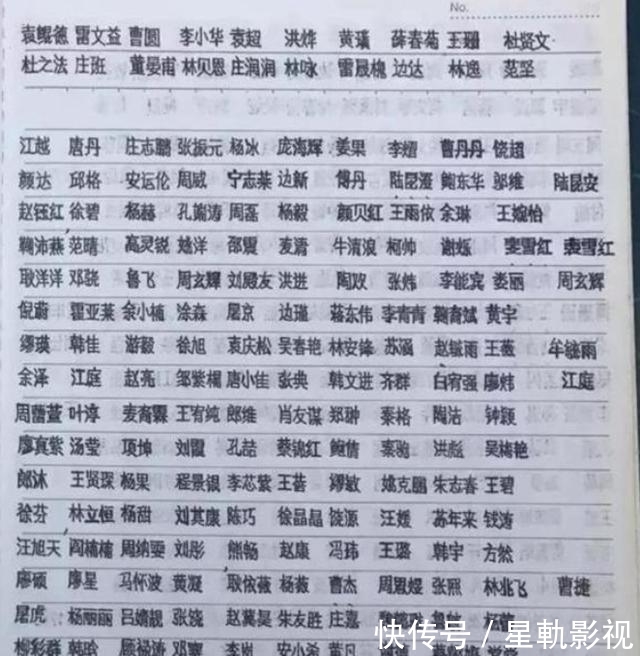 No.
袁鲲德 雷文益 曹圆 李小华 袁超 洪烨 黄瑱 薛春菊 王珊 杜贤文
杜之法 庄班 董晏甫 林贝恩 庄润润 林咏 雷晟槐 边达 林逸 范坚
江越 唐丹 庄志鹏 张振元 杨冰 庞海辉 姜果 李姗 曹丹丹 饶超
颜达 邱格 安运伦 周威 宁志莱 边新 傅丹 陆昆滢 鲍东华 邬维 陆昆安
赵钰红 徐碧 杨赫 孔嵩涛 周磊 杨毅 颜贝红 王雨依 余琳 王嫁怡
鞠沛燕 范晴 高灵锐 姚洋 邵震 麦清 牛清浪 柯帅 谢烁 裴雪红 裴雪红
耿洋洋 邓骁 鲁飞 周玄辉 刘殿友 洪进 陶政 张炜 李能宾 娄丽 周玄辉
倪蔚 霍亚莱 余小楠 涂淼 屠京 边瑾 葛东伟 李青青 鞠育斌 黄宇
缪瑛 韩佳 游毅 徐旭 袁庆松 吴春艳 林安锋 苏涵 赵毓雨 王薇 牟毓雨
余泽 江庭 赵亮 邹繁楣 唐小佳 张典 韩文进 齐群 白宥强 廖炜 江庭
周蕾萱 叶淳 麦裔霖 王宥纯 郎维 肖友谋 郑翀 秦格 陶洁 钟颖
廖真紫 汤莹 项坤 刘霞 孔喆 蔡锦红 鲍倩 秦驰 洪彪 吴梅艳
郎沐 王贤琛 杨果 程景银 李芯紫 王荟 缪敏 姚克鹏 朱志春 王碧
徐芬 林立桓 杨甜 刘其康 陈巧 徐晶晶 饶源 汪媛 苏年来 钱涛
汪旭天 阎楠楠 周纳雯 刘彤 熊畅 赵康 冯玮 王璐 韩宇 方然
廖硕 廖星 马怀波 黄凝 耿依薇 杨薇 曹杰 周思嫒 张熙 林兆飞 曹捷
屠虎 杨丽丽 吕婧靓 张饶 赵蓂昊 朱友胜 庄嘉
柳彩群 韩晗 顾极涛 邓寰 李岚 安小希 黄凡
快传号/星軌影视